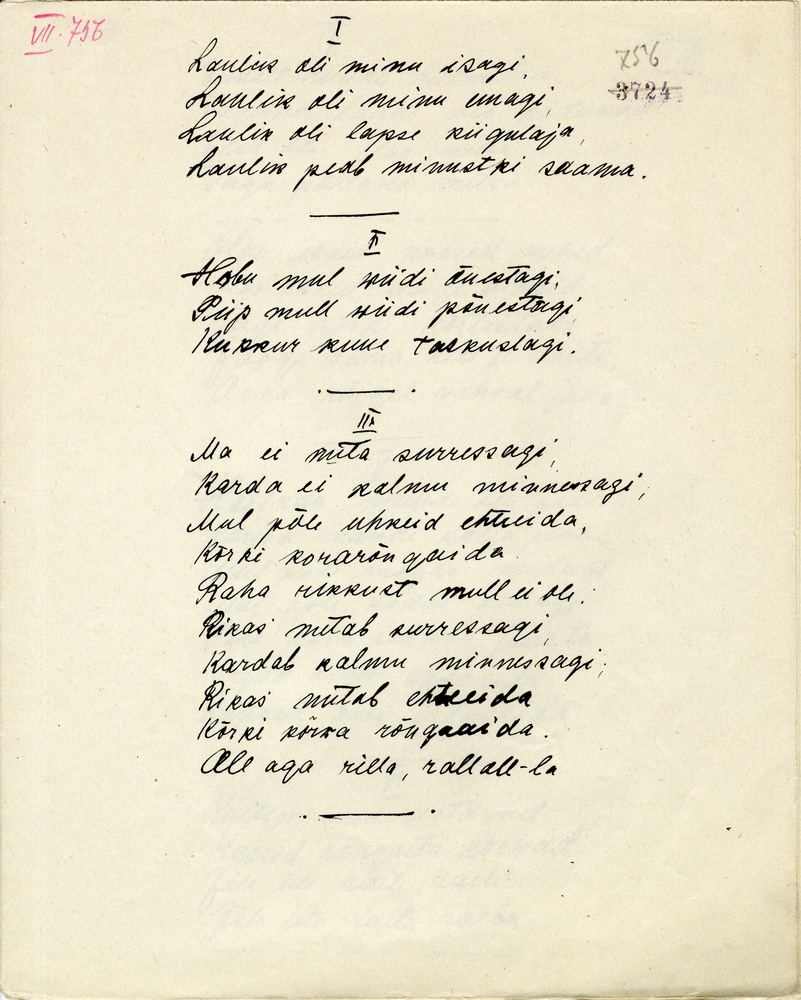 VII. 756
756
3724
I
Laulik oli minu isagi,
Laulik oli minu emagi,
Laulik oli lapse kiigutaja,
Laulik peab minustki saama.
II
Hobu mul wiidi õuestagi,
Piip mull wiidi põuestagi
Kukkur kuue taskustagi.
III
Ma ei nuta surressagi,
Karda ei kalmu minnessagi;
Mul põle uhkeid ehteida,
Kõrki korarõngaida
Raha rikkust mull ei ole;
Rikas nutab surressagi,
Kardab kalmu minnessagi;
Rikas nutab ehteida
Kõrki kõrwa rõngaaida.
Alle aga rilla, rallall-la